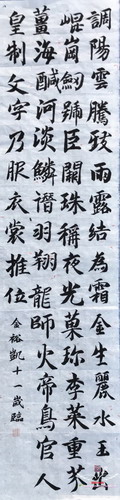 調陽雲騰致雨露結為霜金生麗水玉出
崐崗劒號巨闕珠稱夜光菓珎李菜重芥
薑海醎河淡鱗潛羽翔龍師火帝鳥官人
皇制文字乃服衣裳推位
金裕凱十一歲臨